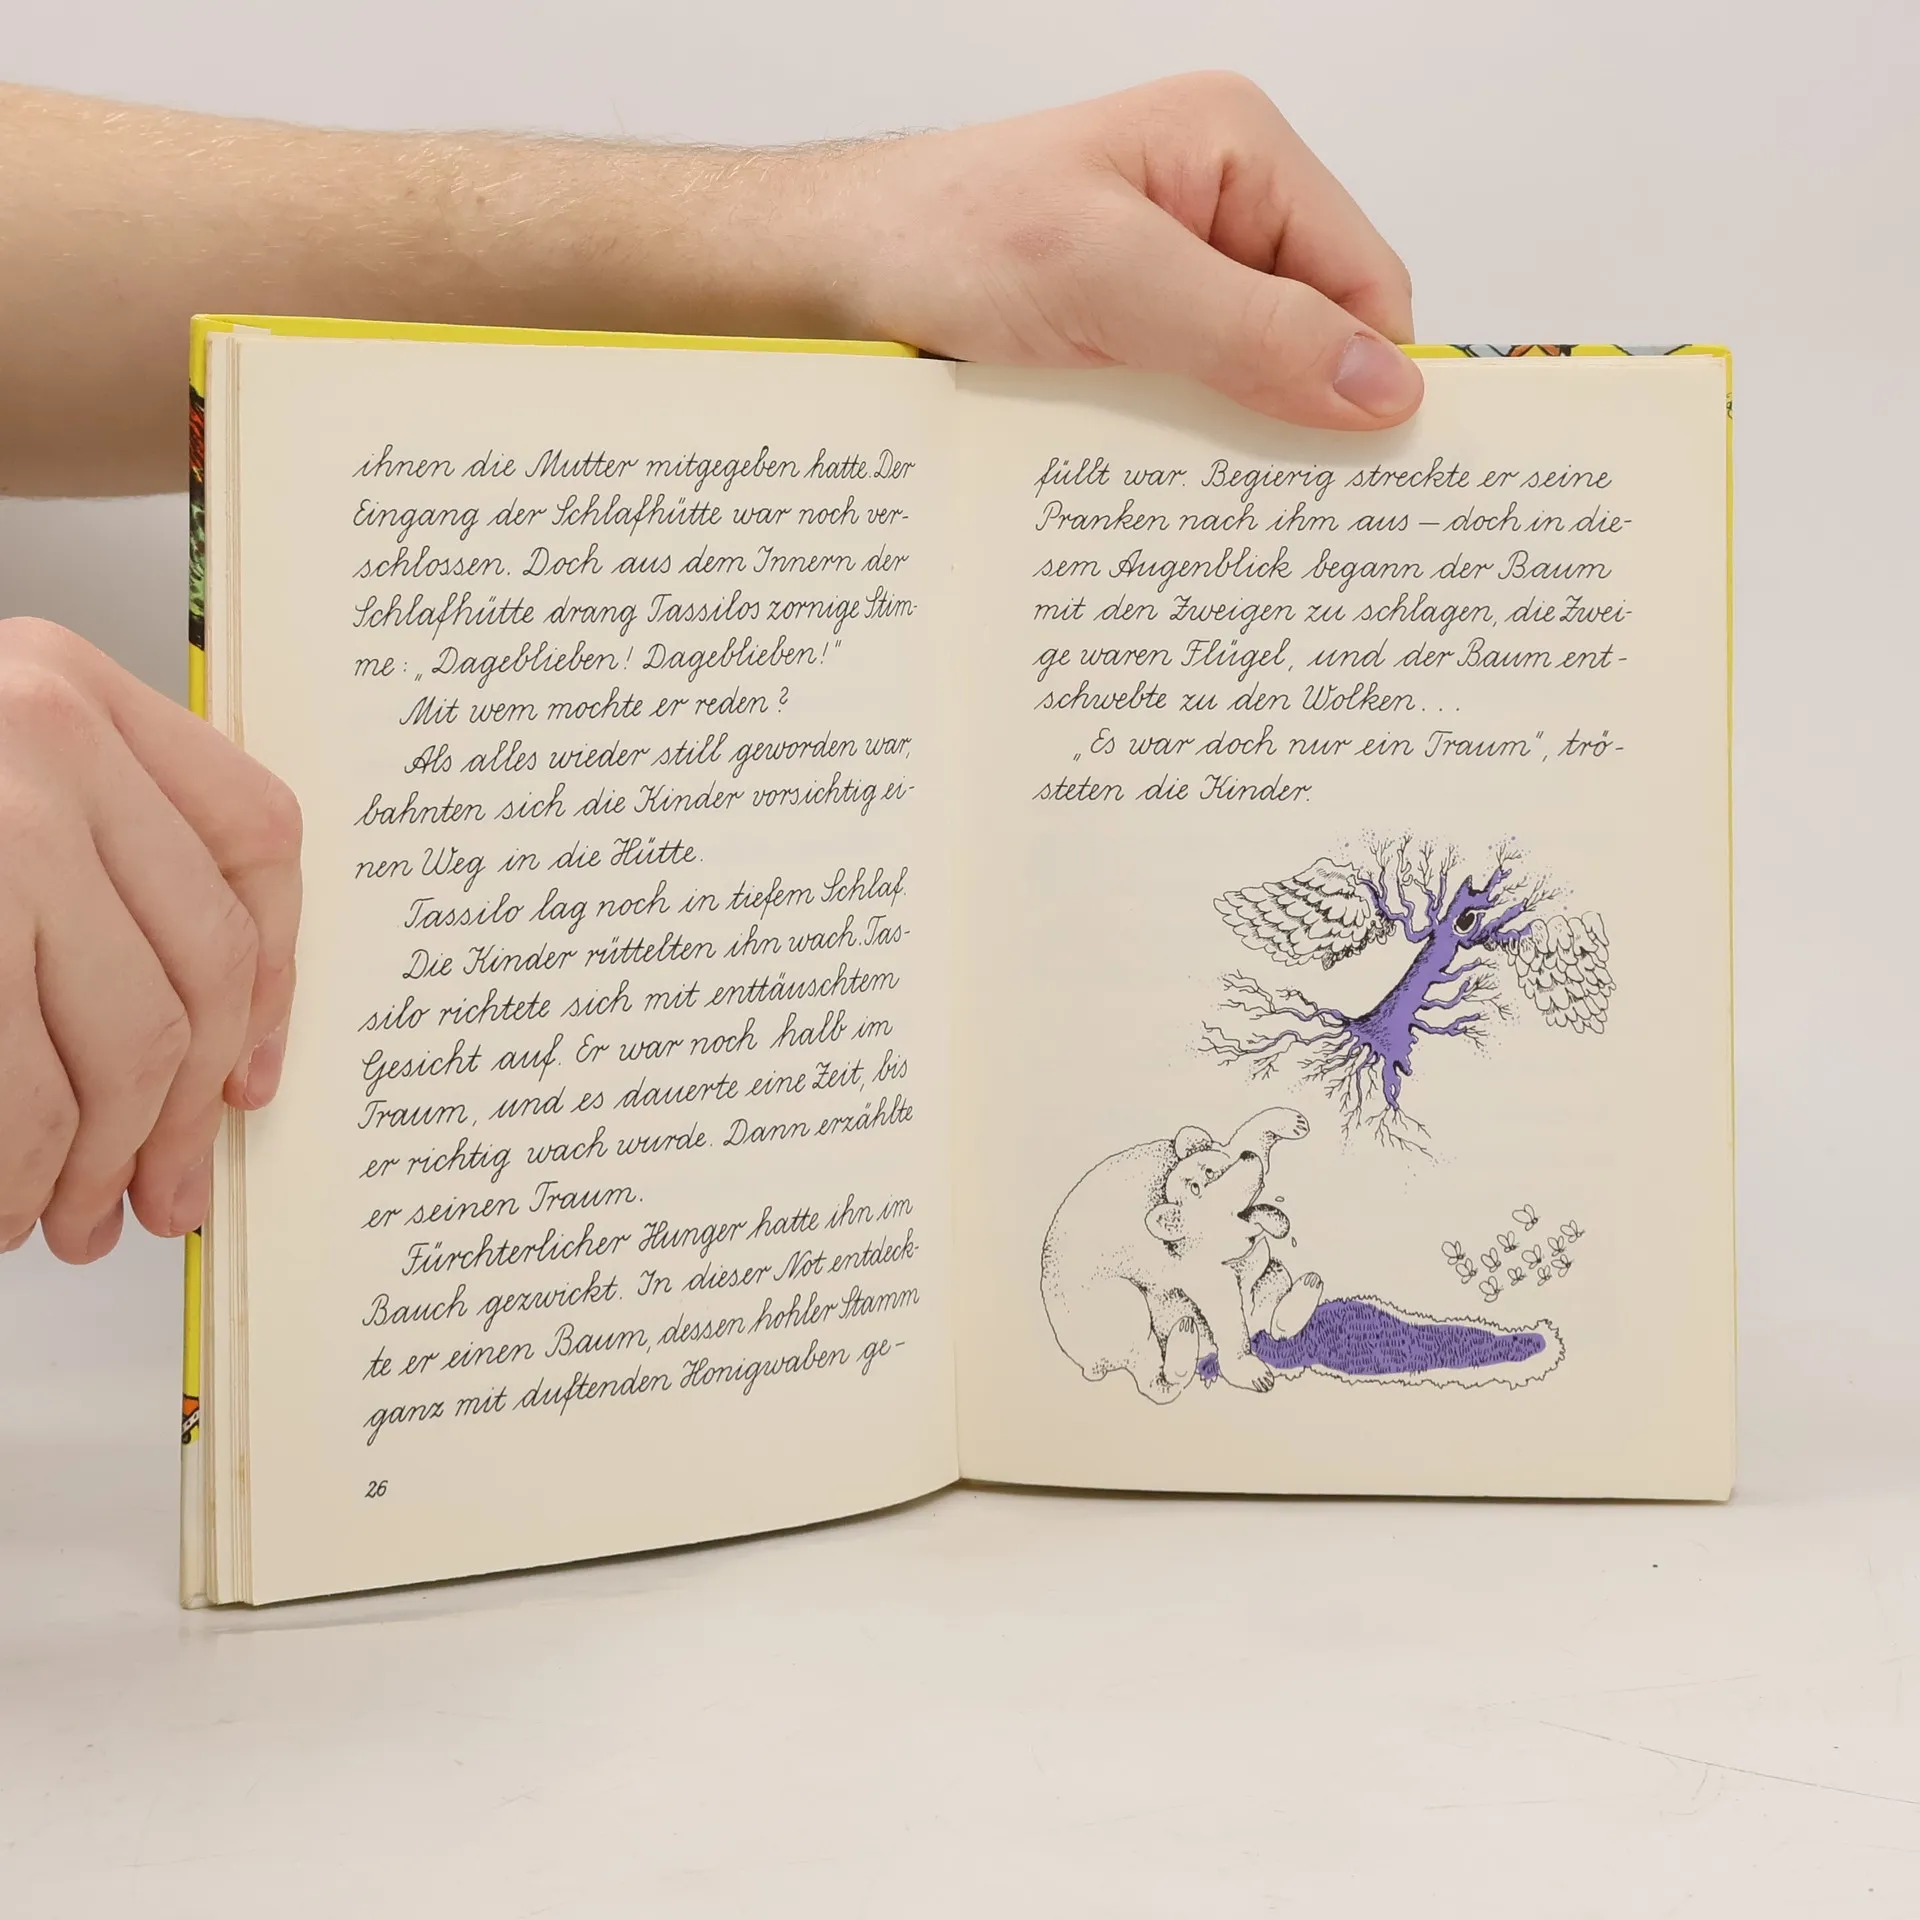 ihnen die Mutter mitgegeben hatte. Der
Eingang der Schlafhütte war noch ver-
schlossen. Doch aus dem Innern der
Schlafhütte drang Tassilos zornige Stim-
me: „Dageblieben! Dageblieben!“
Mit wem mochte er reden?
Als alles wieder still geworden war,
bahnten sich die Kinder vorsichtig ei-
nen Weg in die Hütte.
Tassilo lag noch in tiefem Schlaf.
Die Kinder rüttelten ihn wach. Tas-
silo richtete sich mit enttäuschtem
Gesicht auf. Er war noch halb im
Traum, und es dauerte eine Zeit, bis
er richtig wach wurde. Dann erzählte
er seinen Traum.
Fürchterlicher Hunger hatte ihn im
Bauch gezwickt. In dieser Not entdeck-
te er einen Baum, dessen hohler Stamm
ganz mit duftenden Honigwaben ge-
26
füllt war. Begierig streckte er seine
Pranken nach ihm aus – doch in die-
sem Augenblick begann der Baum
mit den Zweigen zu schlagen, die Zwei-
ge waren Flügel, und der Baum ent-
schwebte zu den Wolken...
„Es war doch nur ein Traum“, trö-
steten die Kinder.